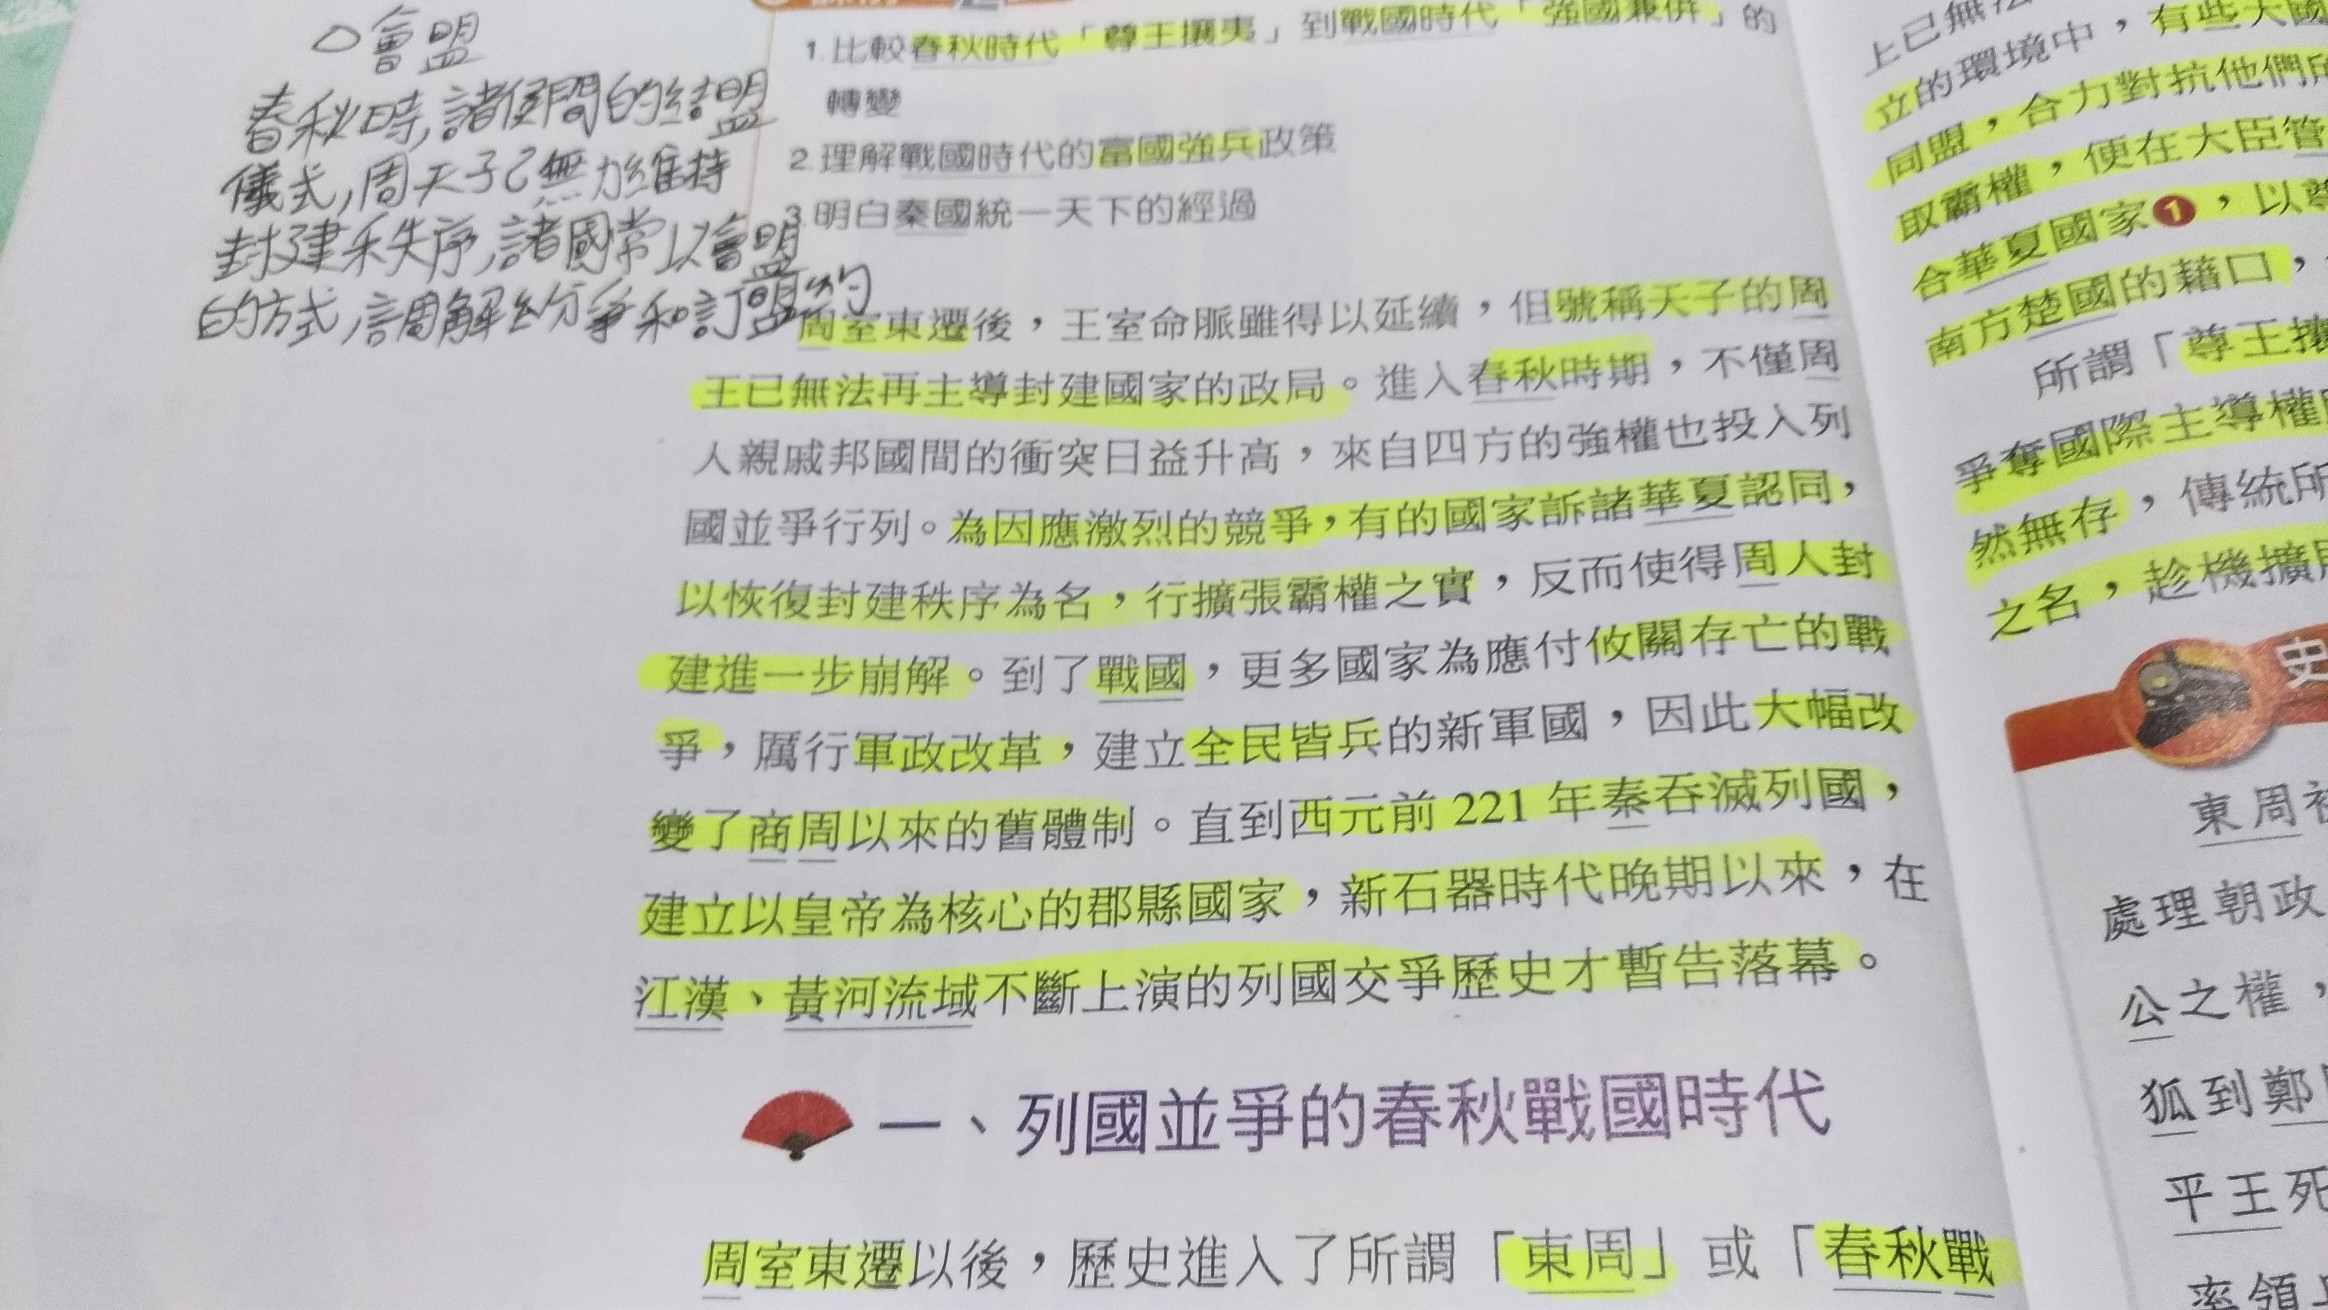 ○會盟
春秋時,諸侯間的結盟
儀式,周天子已無力維持
封建秩序,諸國常以會盟
的方式,調解紛爭和訂盟約
1.比較春秋時代「尊王攘夷」到戰國時代「強國兼併」的
轉變
2.理解戰國時代的富國強兵政策
3.明白秦國統一天下的經過
周室東遷後，王室命脈雖得以延續，但號稱天子的周
王已無法再主導封建國家的政局。進入春秋時期，不僅周
人親戚邦國間的衝突日益升高，來自四方的強權也投入列
國並爭行列。為因應激烈的競爭，有的國家訴諸華夏認同，
以恢復封建秩序為名，行擴張霸權之實，反而使得周人封
建進一步崩解。到了戰國，更多國家為應付攸關存亡的戰
爭，厲行軍政改革，建立全民皆兵的新軍國，因此大幅改
變了商周以來的舊體制。直到西元前 221 年秦吞滅列國，
建立以皇帝為核心的郡縣國家，新石器時代晚期以來，在
江漢、黃河流域不斷上演的列國交爭歷史才暫告落幕。
一、列國並爭的春秋戰國時代
周室東遷以後，歷史進入了所謂「東周」或「春秋戰
上已無
立的環境中，有些大國
同盟，合力對抗他們
取霸權，便在大臣管
合華夏國家1，以尊
南方楚國的藉口，
所謂「尊王攘
爭奪國際主導權
然無存，傳統所
之名，趁機擴
史
東周
處理朝政
公之權，
狐到鄭
平王死
率領